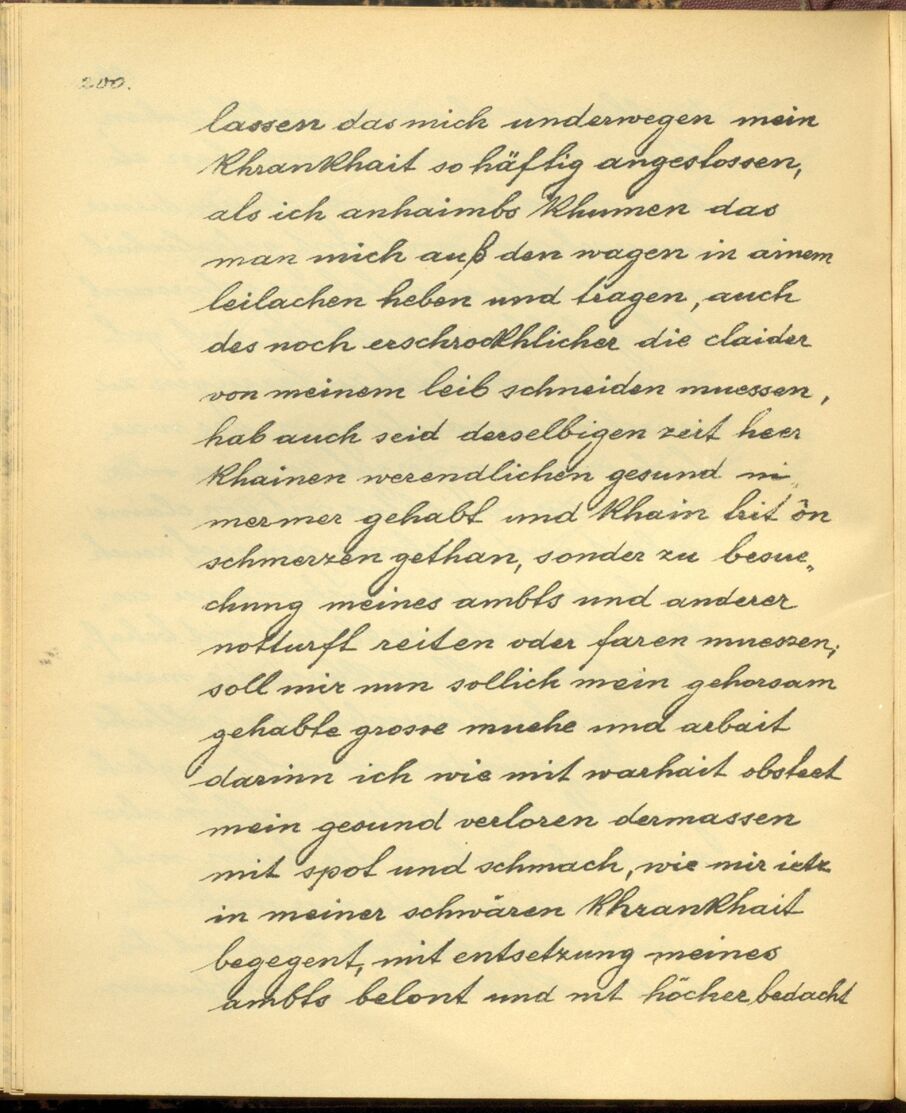 200.
lassen das mich underwegen mein
Khrankhait so häftig angestossen,
als ich anhaimbs Khumen das
man mich auß den wagen in ainem
leilachen heben und tragen, auch
des noch erschrockhlicher die claider
von meinem leib schneiden muessen,
hab auch seid derselbigen zeit heer
Khainen werendlichen gesund ni
mermer gehabt und Khain trit ôn
schmerzen gethan, sonder zu besue„
chung meines ambts und anderer
notturft reiten oder faren muessen;
soll mir nun sollich mein gehorsam
gehabte grosse muehe und arbait
darinn ich wie mit warhait obsteet
mein gesund verloren dermassen
mit spot und schmach, wie mir ietz
in meiner schwären Khrankhait
begegent, mit entsetzung meines
ambts belont und nit höcher bedacht